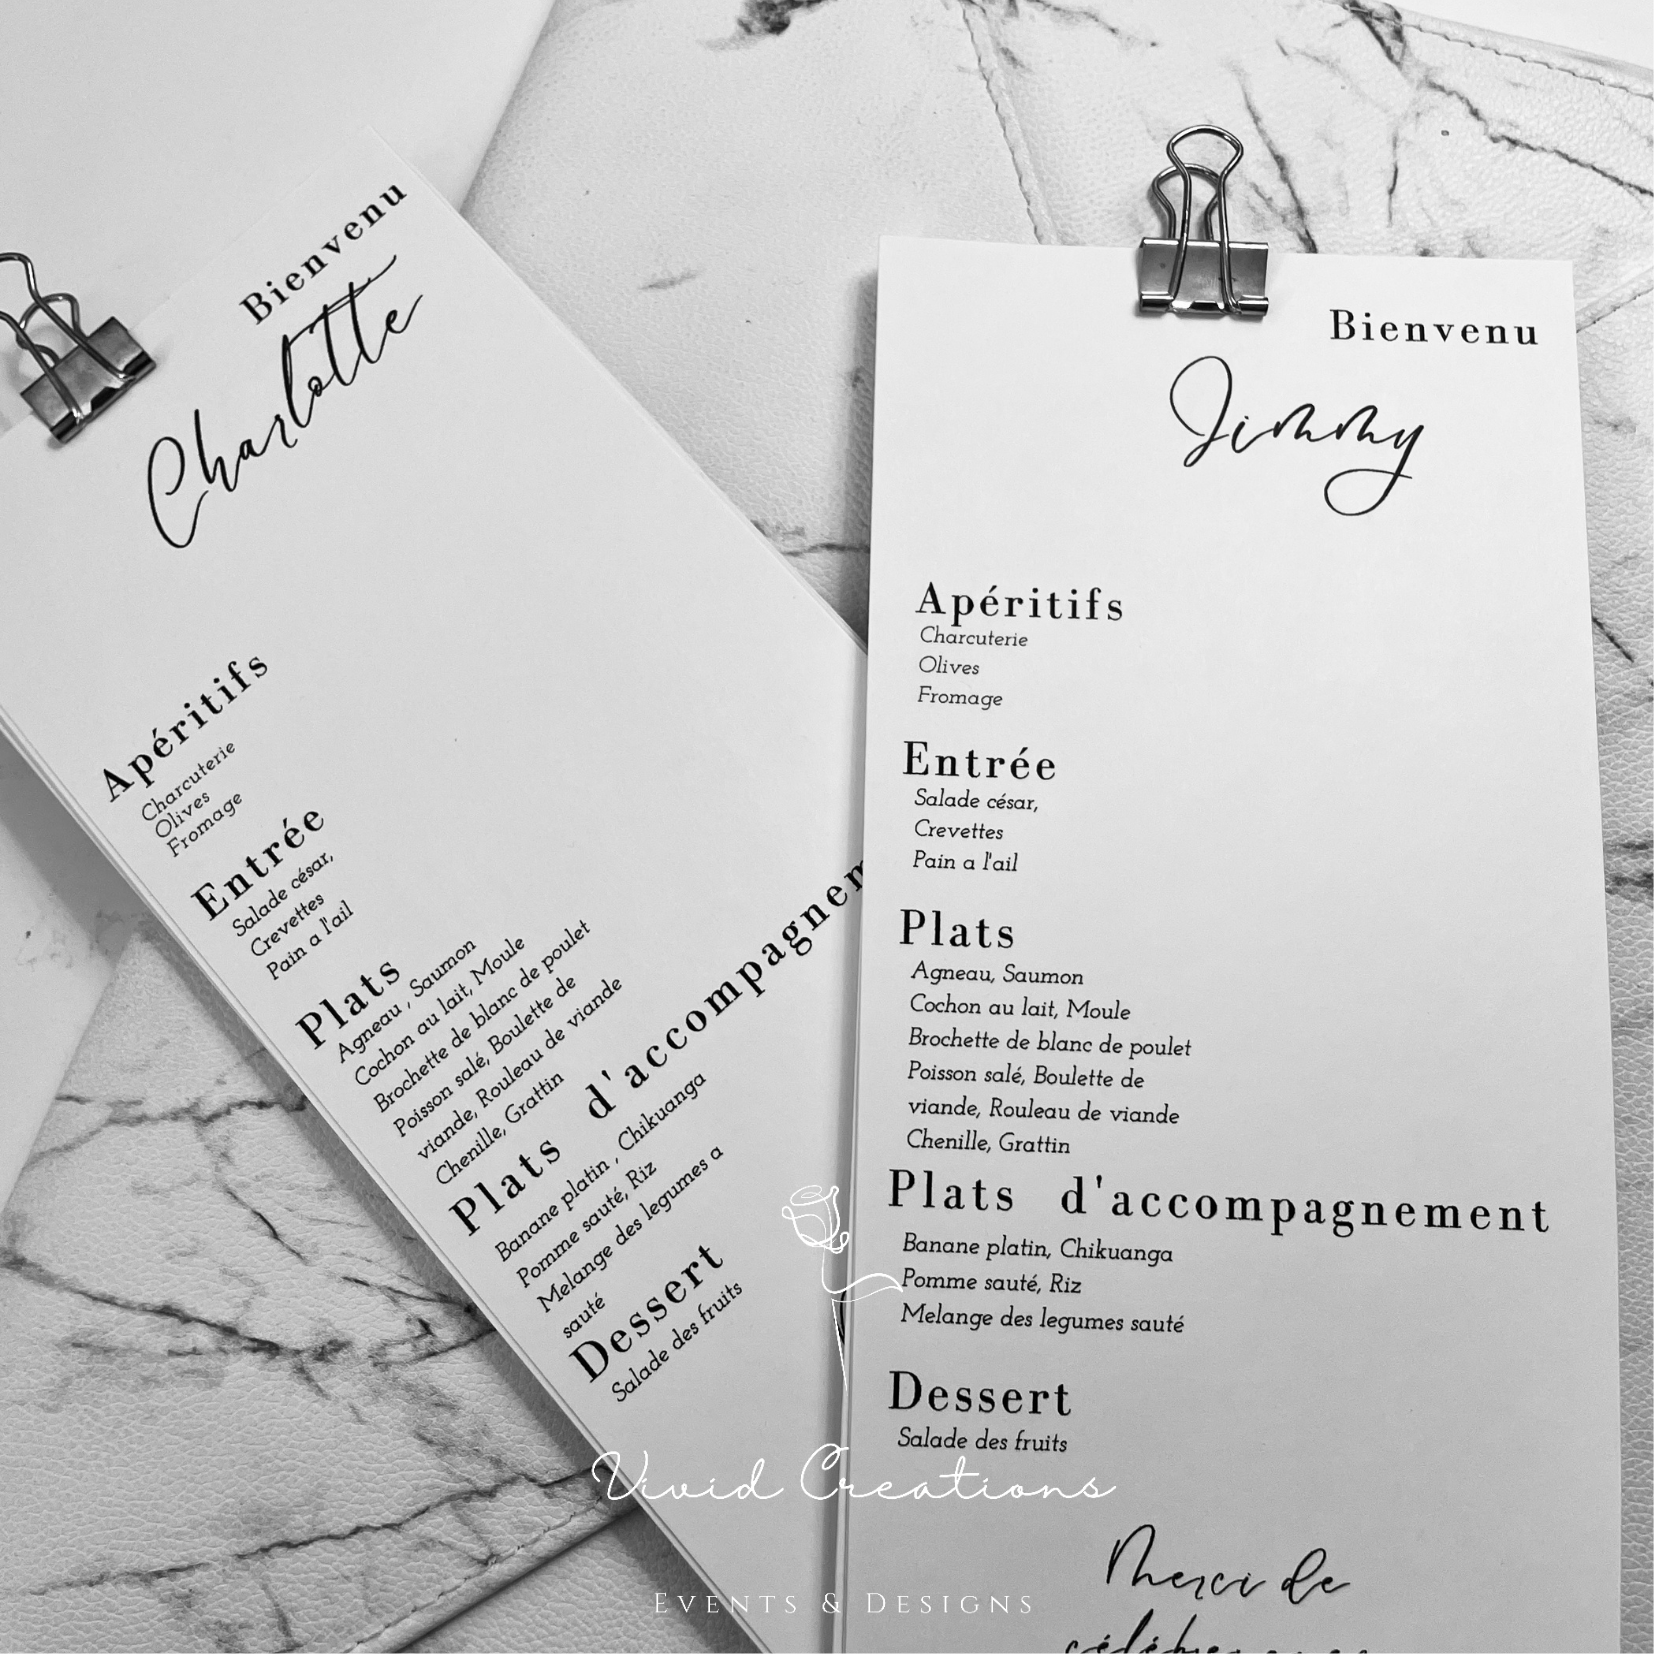 Bienvenu
Charlotte
Apéritifs
Charcuterie
Olives
Fromage
Entrée
Salade césar,
Crevettes
Pain a l'ail
Plats
Agneau , Saumon
Cochon au lait, Moule
Brochette de blanc de poulet
Poisson salé, Boulette de
viande, Rouleau de viande
Chenille, Grattin
Plats d'accompagnem
Banane platin , Chikuanga
Pomme sauté, Riz
Melange des legumes a
sauté
Dessert
Salade des fruits
Bienvenu
Jimmy
Apéritifs
Charcuterie
Olives
Fromage
Entrée
Salade césar,
Crevettes
Pain a l'ail
Plats
Agneau, Saumon
Cochon au lait, Moule
Brochette de blanc de poulet
Poisson salé, Boulette de
viande, Rouleau de viande
Chenille, Grattin
Plats d'accompagnement
Banane platin, Chikuanga
Pomme sauté, Riz
Melange des legumes sauté
Dessert
Salade des fruits
Merci de
Vivid Creations
Events & Designs